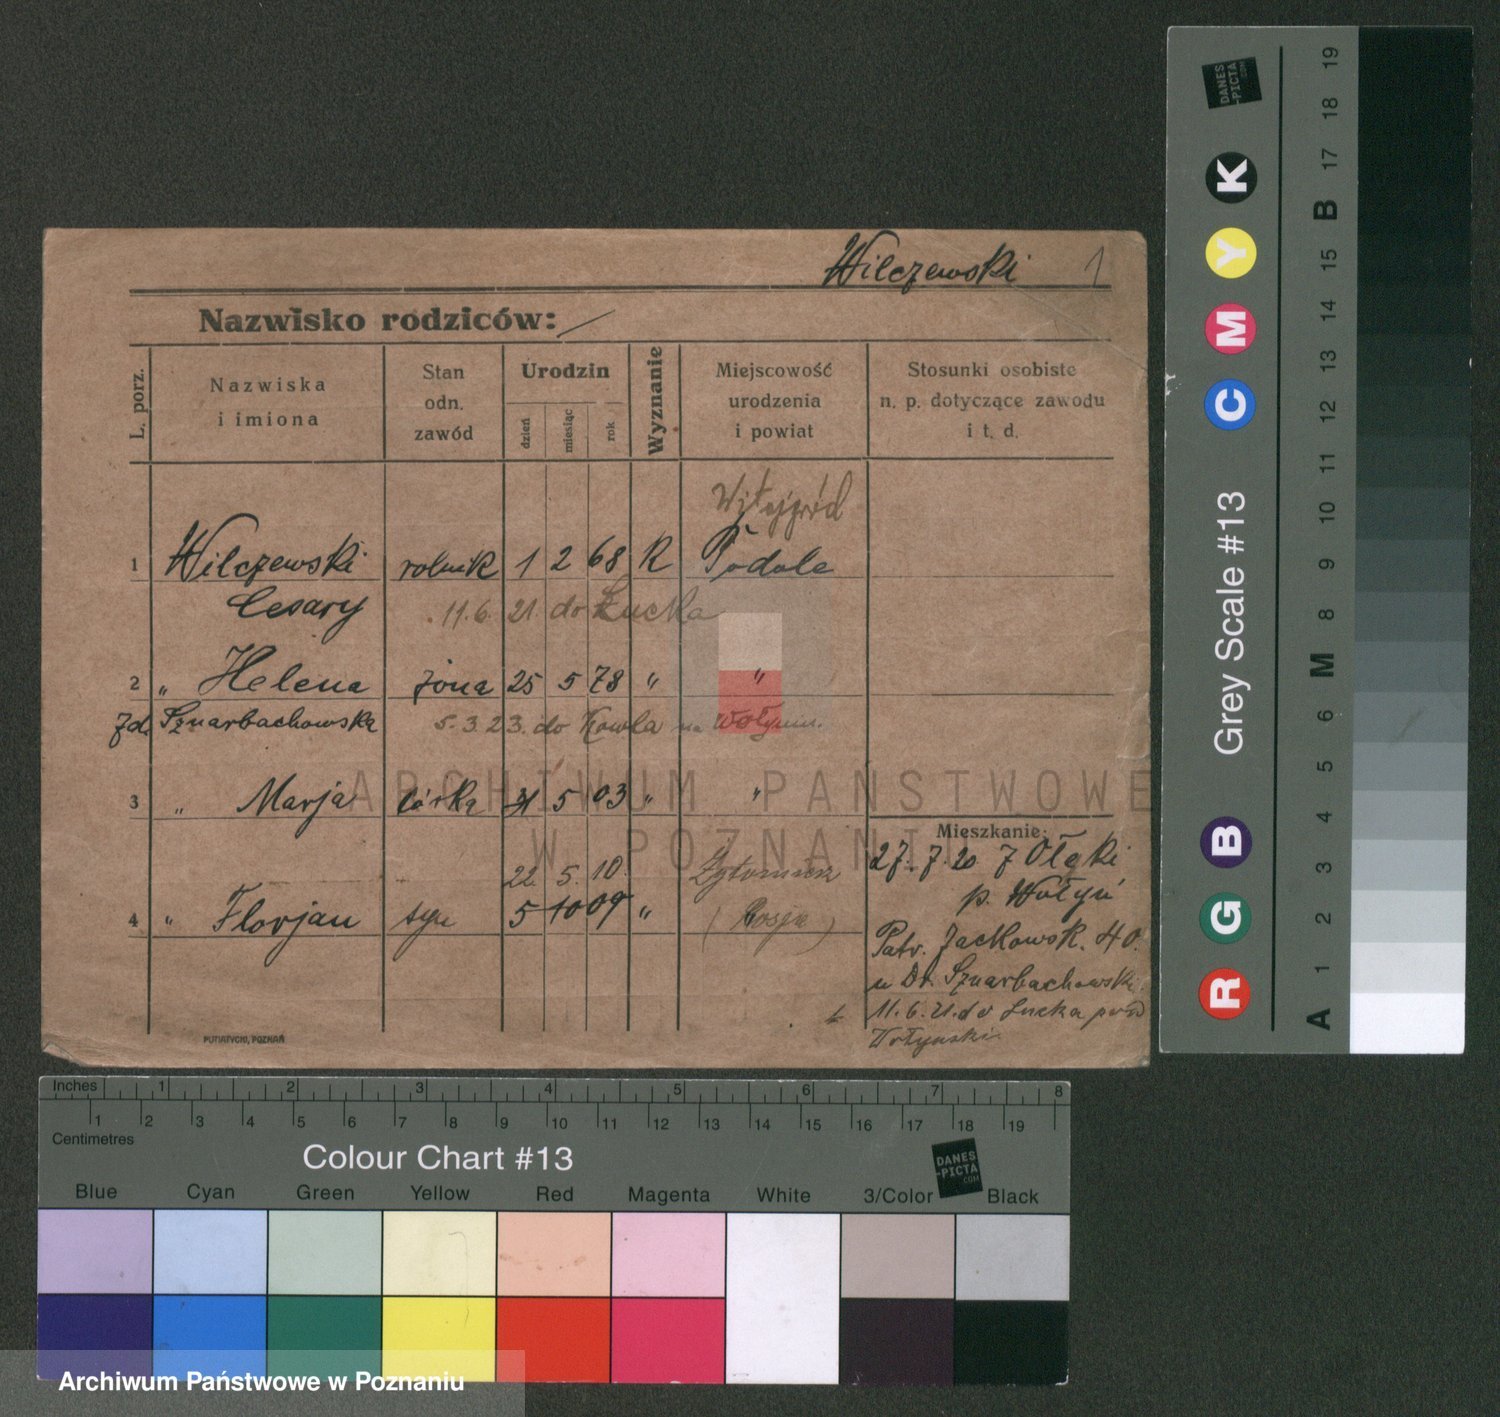 Wilczewski 1
Nazwisko rodziców: /
L. porz.
Nazwiska
i imiona
Stan
odn.
zawód
Urodzin
dzień
miesiąc
rok
Wyznanie
Miejscowość
urodzenia
i powiat
Stosunki osobiste
n. p. dotyczące zawodu
i t. d.
1 Wilczewski rolnik 1 2 68 R Podole
Cesary 11.6. 21. do Łucka
2 " Helena żona 25 5 78 " "
Zd. Sznarbachowska 5.3.23. do Kowla na Wołyniu.
3 " Marja córka 31 5 03 " "
22 5. 10. Żytomierz
4 " Florjan syn 5 10 09 " (Rosja)
Mieszkanie:
27.7.20 z Ołyki
p. Wołyń
Patr. Jackowsk. 40.
u Dr. Sznarbachowski
11.6.21. do Łucka
Wołyński.
PUTIATYCKI, POZNAŃ
ARCHIWUM PAŃSTWOWE
W POZNANIU
Inches 1 2 3 4 5 6 7 8
1 2 3 4 5 6 7 8 9 10 11 12 13 14 15 16 17 18 19
Centimetres
Colour Chart #13
DANES
-PICTA
.COM
Blue Cyan Green Yellow Red Magenta White 3/Color Black
Archiwum Państwowe w Poznaniu
DANES
-PICTA
.COM
R G B C M Y K
Grey Scale #13
A 1 2 3 4 5 6 M 8 9 10 11 12 13 14 15 B 17 18 19